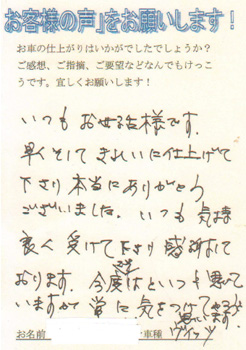 お客様の声」をお願いします！
お車の仕上がりはいかがでしたでしょうか？
ご感想、ご指摘、ご要望などなんでもけっこ
うです。宜しくお願いします！
いつもお世話様です。
早くそしてきれいに仕上げて
下さり本当にありがとう
ございました。いつも気持
良く受けて下さり感謝して
おります。今度は
といつも思って
いますが常に気をつけて
お名前
車種
ヴィッツ